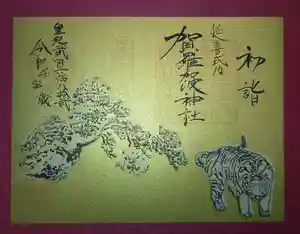 初詣
延喜式内
賀羅加波神社
皇紀弐
令和壬寅歳